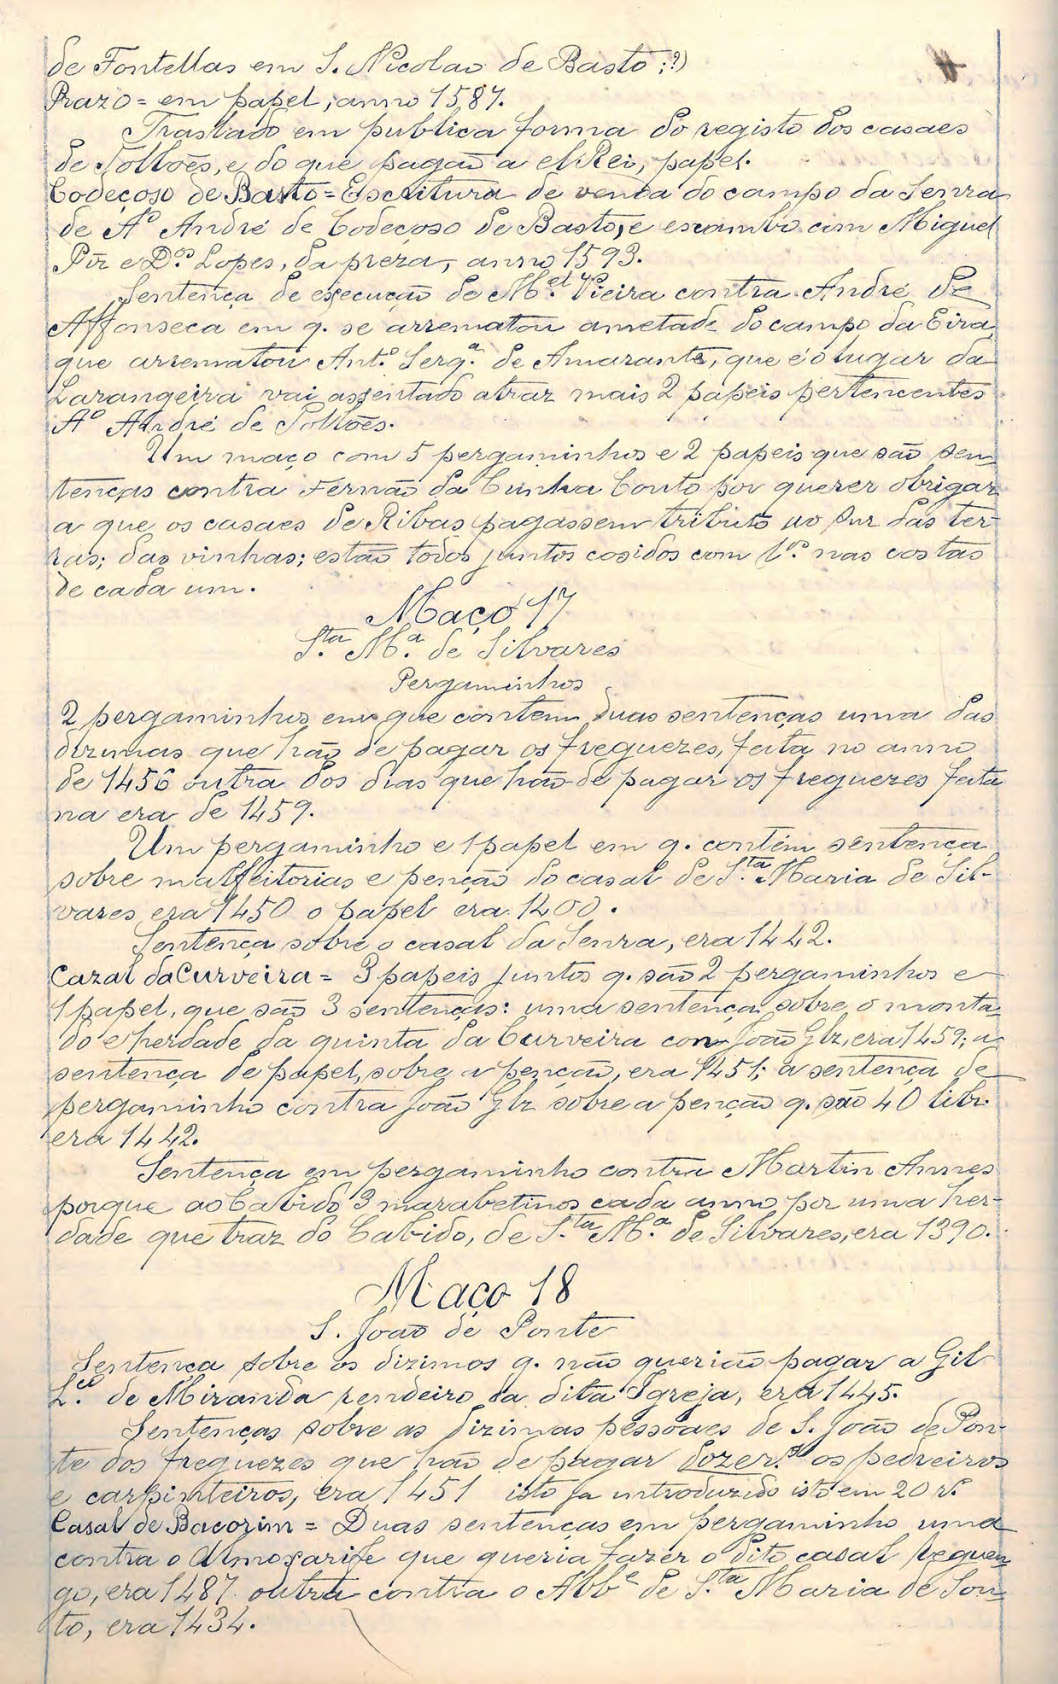 de Fontellas em S. Nicolao de Basto (?)
Prazo = em papel, anno 1587.
Traslado em publica forma do registo dos casaes
de Tolloẽs, e do que pagaõ a elRei, papel.
Codeçoso de Basto = Escritura de venda do campo da Senra
de Aº André de Codeçoso de Basto, e escambo com Miguel
Piz e D.os Lopes, da preza, anno 1593.
Sentença de execução de M.el Vieira contra André de
Affonseca em q. se arrematou ametade do campo da Eira
que arrematou Ant.º Serq.ª de Amarante, que é o lugar da
Larangeira vai assentado atraz mais 2 papeis pertencentes
Aº André de Tolloẽs.
Um maço com 5 pergaminhos e 2 papeis que são sen
tenças contra Fernão da Cunha Couto por querer obrigar
a que os casaes de Ribas pagassem tributo ao Snr das ter-
ras; das vinhas; estão todos juntos cosidos com nas costas
de cada um.
Maço 17
S.ta M.ª de Silvares
Pergaminhos
2 pergaminhos em que contem duas sentenças uma das
dizimas que hão de pagar os freguezes, feita no anno
de 1456 outra dos dias que hão de pagar os freguezes feita
na era de 1459.
Um pergaminho e 1 papel em q. contém sentença
sobre malfeitorias e penção do casal de S.ta Maria de Sil-
vares era 1450 o papel era 1400.
Sentença sobre o casal da Senra, era 1442.
Cazal da Curveira = 3 papeis juntos q. são 2 pergaminhos e
1 papel, que são 3 sentenças: uma sentença sobre o monta-
do e herdade da quinta da Curveira com João Glz, era 1459; a
sentença de papel, sobre a penção, era 1451; a sentença de
pergaminho contra João Glz sobre a penção q. são 40 libr.
era 1442.
Sentença em pergaminho contra Martin Annes
porque ao Cabido 3 marabetinos cada anno por uma her-
dade que traz do Cabido, de S.ta M.ª de Silvares, era 1390.
Maço 18
S. João de Ponte
Sentença sobre os dizimos q. não querião pagar a Gil
L.ço de Miranda rendeiro da dita Igreja, era 1445.
Sentenças sobre as dizimas pessoaes de S. João de Pon-
te dos freguezes que hão de pagar os pedreiros
e carpinteiros, era 1451 isto ja introduzido isto em 20 r.s
Casal de Bacorim = Duas sentenças em pergaminho uma
contra o Almoxarife que queria fazer o dito casal reguen-
go, era 1487 outra contra o Abb.e de S.ta Maria de Sou-
to, era 1434.